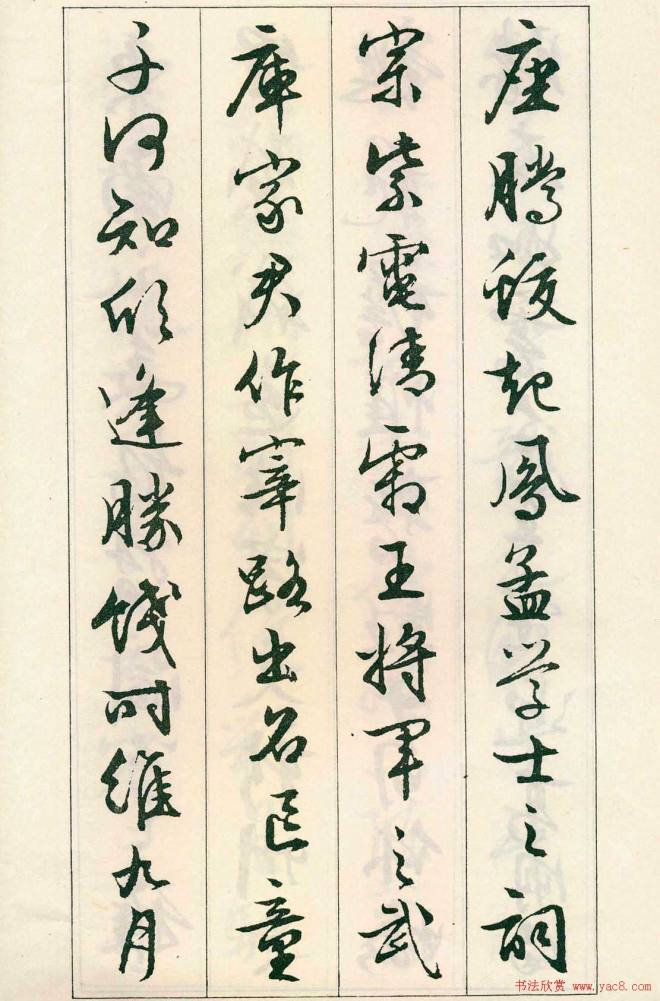 座腾蛟起鳳孟学士之詞
宗紫電清霜王将軍之武
庫家君作宰路出名區童
子何知欣逢勝餞时維九月
书法欣赏 www.yac8.com